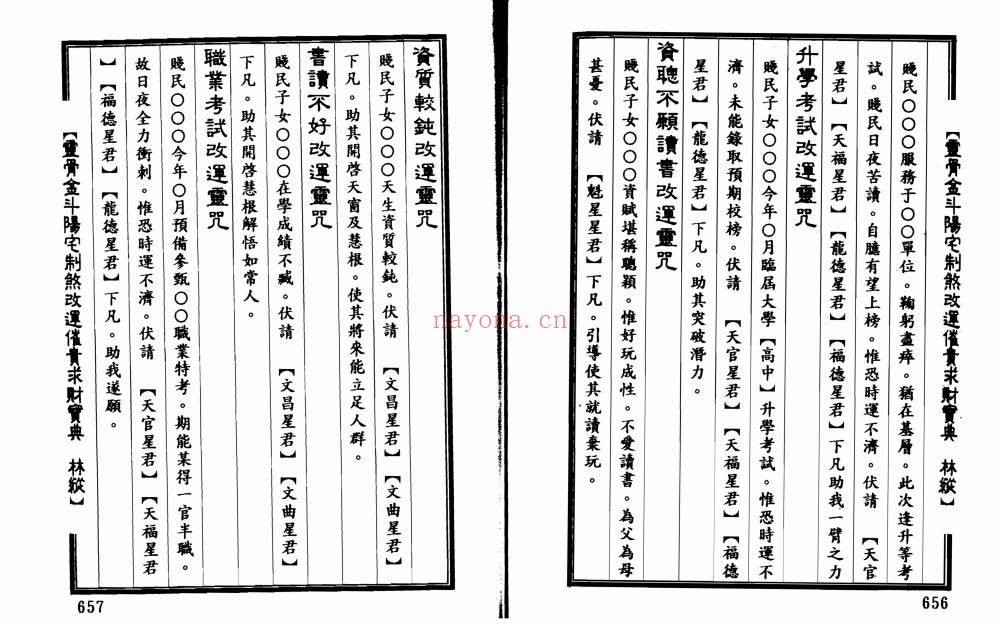 【靈骨金斗陽宅制煞改運催貴求財寶典 林縱】
賤民〇〇〇服務于〇〇單位。鞠躬盡瘁。猶在基層。此次逢升等考
試。賤民日夜苦讀。自臆有望上榜。惟恐時運不濟。伏請 【天官
星君】【天福星君】【龍德星君】【福德星君】下凡助我一臂之力
升學考試改運靈咒
賤民子女〇〇〇今年〇月臨屆大學【高中】升學考試。惟恐時運不
濟。未能錄取預期校榜。伏請 【天官星君】【天福星君】【福德
星君】【龍德星君】下凡。助其突破潛力。
資聰不願讀書改運靈咒
賤民子女〇〇〇資賦堪稱聰穎。惟好玩成性。不愛讀書。為父為母
甚憂。伏請 【魁星星君】下凡。引導使其就讀棄玩。
656
資質較鈍改運靈咒
賤民子女〇〇〇天生資質較鈍。伏請 【文昌星君】【文曲星君】
下凡。助其開啓天窗及慧根。使其將來能立足人群。
書讀不好改運靈咒
賤民子女〇〇〇在學成績不臧。伏請 【文昌星君】【文曲星君】
下凡。助其開啓慧根解悟如常人。
職業考試改運靈咒
賤民〇〇〇今年〇月預備參甄〇〇職業特考。期能某得一官半職。
故日夜全力衝刺。惟恐時運不濟。伏請 【天官星君】【天福星君
】【福德星君】【龍德星君】下凡。助我遂願。
【靈骨金斗陽宅制煞改運催貴求財寶典 林縱】
657
nayona.cn